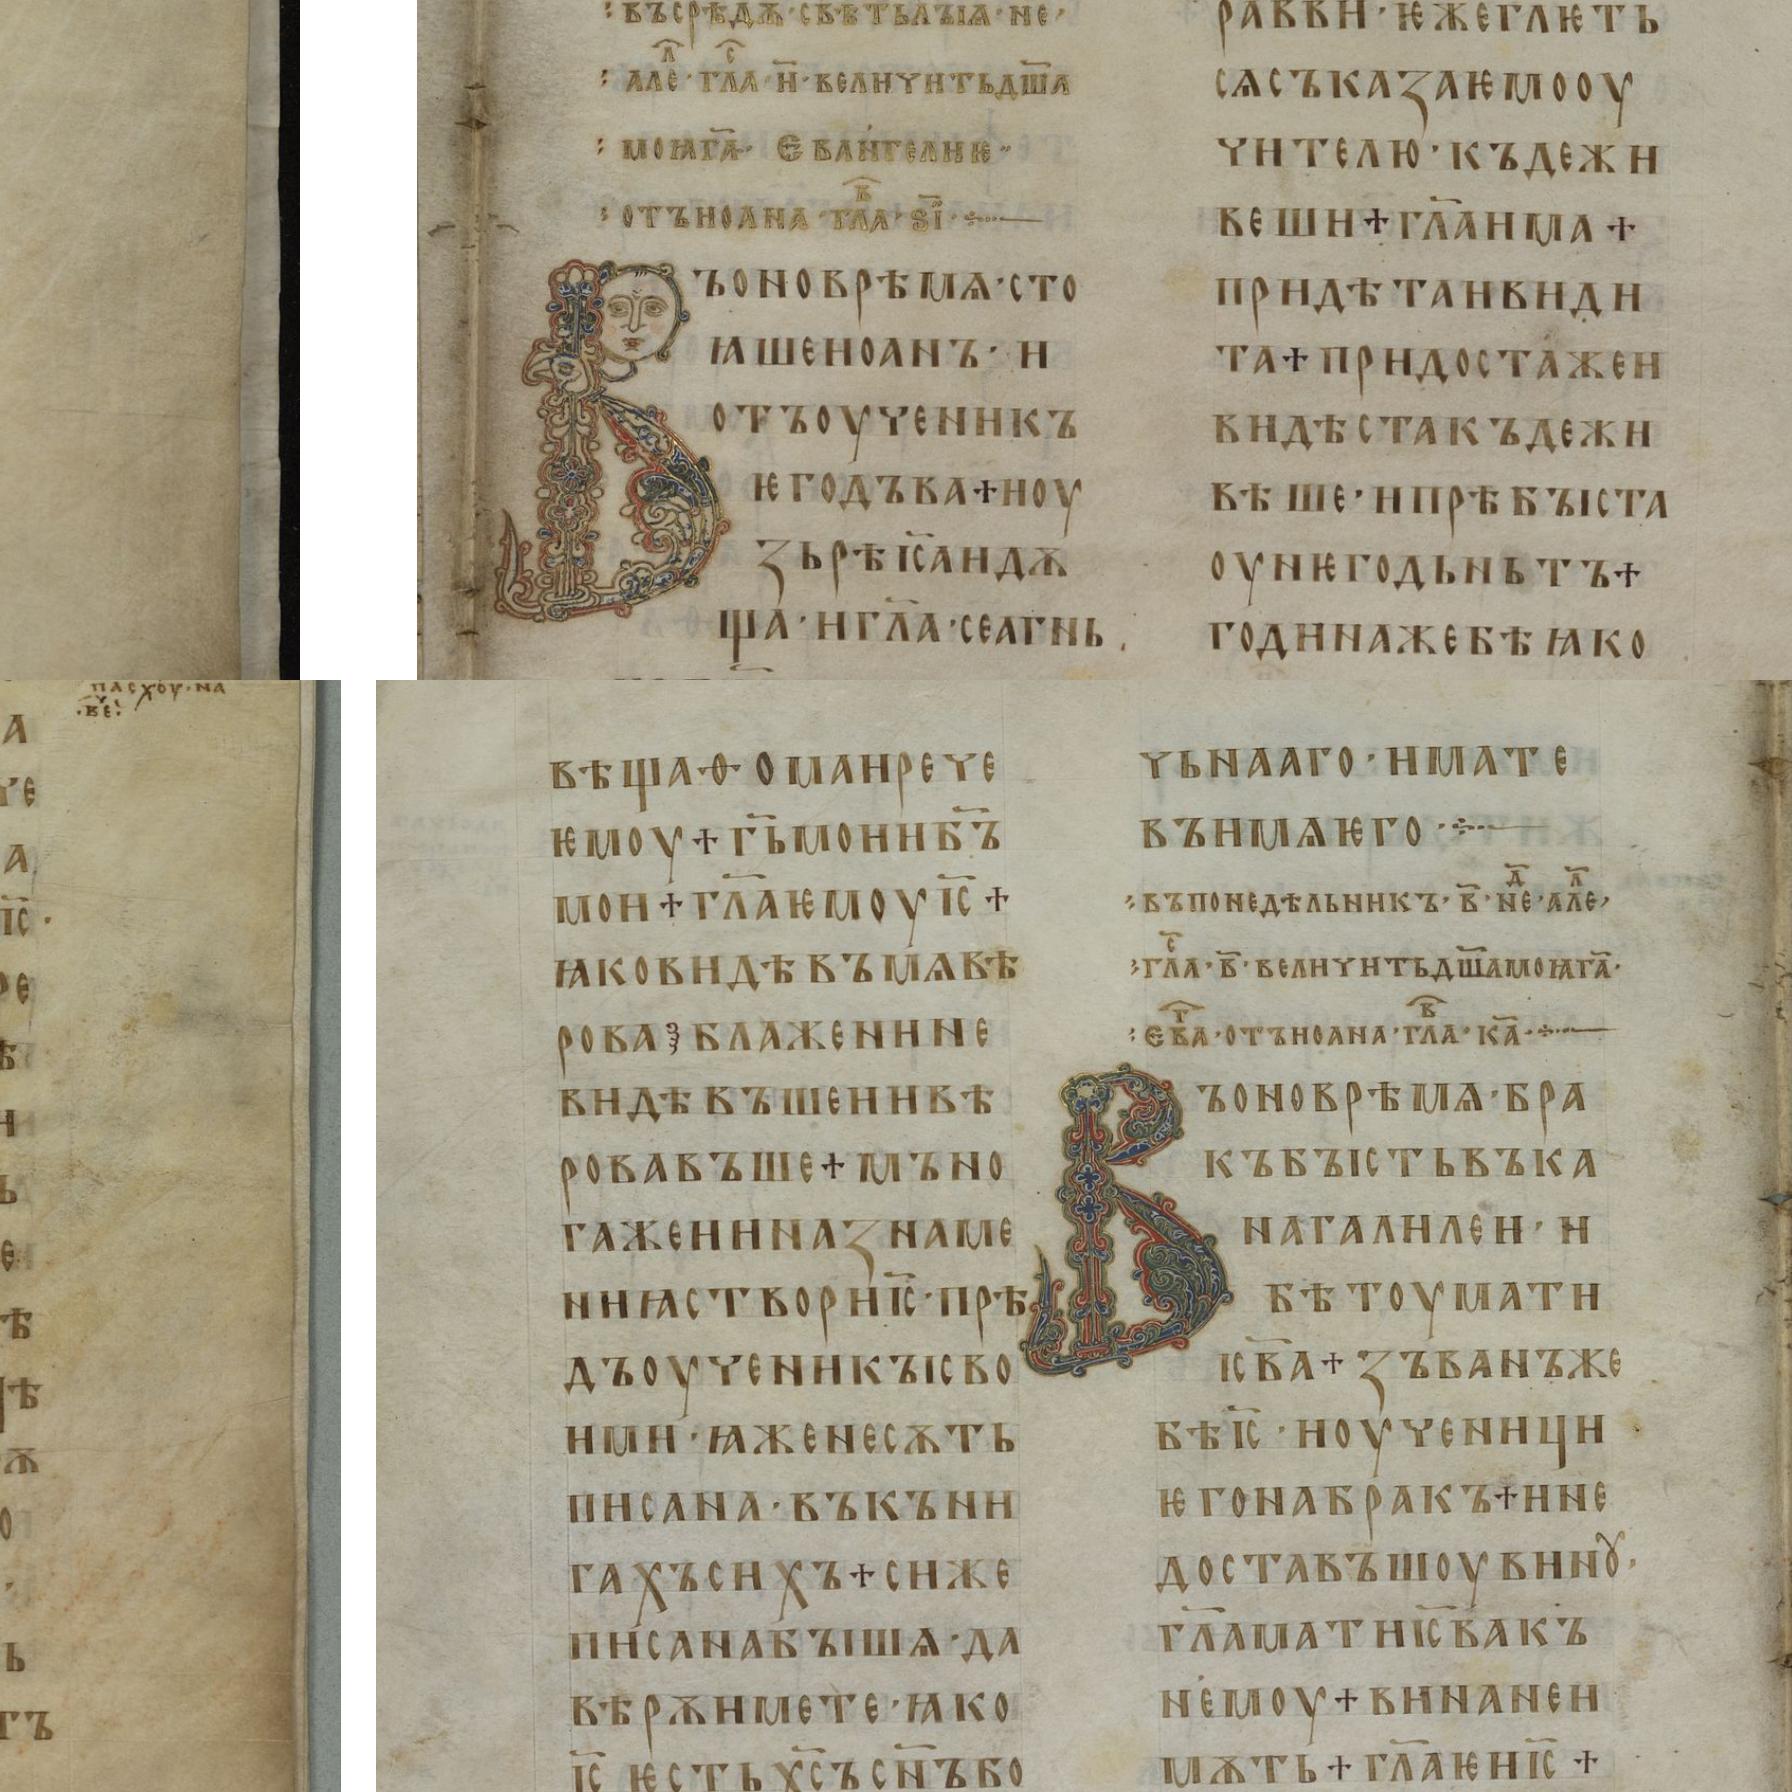 въсрѣдѫ·свѣтьлъıѩ·не·
але·гла҃·н҃·величитьдш҃а
моꙗга҃· Єванг҄елиѥ·
отъиоана·гла҃·ѕı҃·
Въоноврѣмѧ·сто
ꙗшеиоанъ·и
отъоученикъ
ѥгодъва+иоу
зьрѣıс҃аидѫ
ща·игл҃а·сеагнь
равви·ѥжеглѥть
сѧсъказаѥмооу
чителю·къдежи
веши+гл҃аима+
придѣтаивиди
та+придостажеи
видѣстакъдежи
вѣше·ипрѣбъıста
оунѥгодьньтъ+
годинажебѣꙗко
пасхоу·на
·ве҃·
а
че
а
ıс҃·
ре
н
ь
е
ѣ
ѫ
о
ь
тъ
вѣща·ѳ·омаирече
ѥмоу+гь҃моииб҃ъ
мои+гл҃аѥмоуıс҃+
ꙗковидѣвъмѧвѣ
рова блажениие
видѣвъшеиивѣ
ровавъше+мъно
гажеинназнаме
ниꙗстворнıс҃·прѣ
дъоученикъıсво
ими·ꙗженесѫть
писана·въкъни
гахъсихъ+сиже
писанабъıшѧ·да
вѣрѫимете·ꙗко
ıс҃ѥстьхс҃ъсн҃ъбо
чьнааго·имате
въимѧѥго·
въпонедѣльникъ·в҃·не·але·
гла·в҃·величитьдш҃амоꙗга҃·
ев҃а·отъиоана·гла҃·ка҃·
Въоноврѣмѧ·бра
къбъıстьвъка
нагалилеи·и
бѣтоумати
ıсв҃а+зъванъже
бѣıс҃·иоученици
ѥгонабракъ+ине
доставъшоувинꙋ·
гл҃аматиıсв҃акъ
немоу+винанеи
мѫть+гл҃аѥиıс҃+